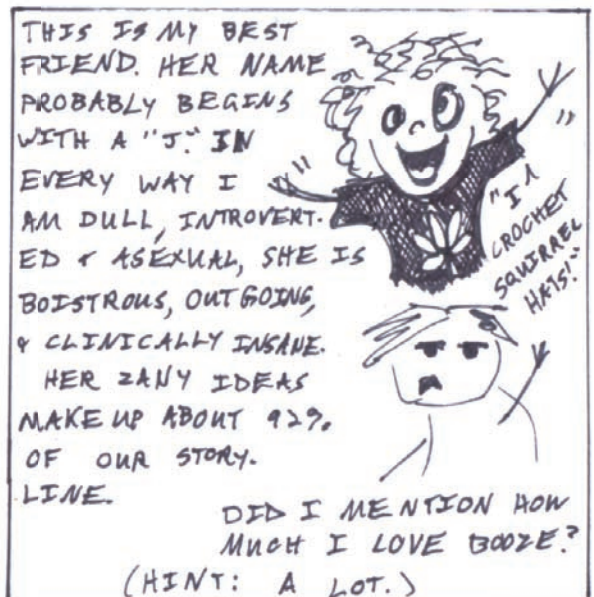 THIS IS MY BEST
FRIEND. HER NAME
PROBABLY BEGINS
WITH A "J." IN
EVERY WAY I
AM DULL, INTROVERT-
ED & ASEXUAL, SHE IS
BOISTROUS, OUTGOING,
& CLINICALLY INSANE.
HER ZANY IDEAS
MAKE UP ABOUT 92%
OF OUR STORY-
LINE.
"I
CROCHET
SQUIRREL
HATS!"
DID I MENTION HOW
MUCH I LOVE BOOZE?
(HINT: A LOT.)